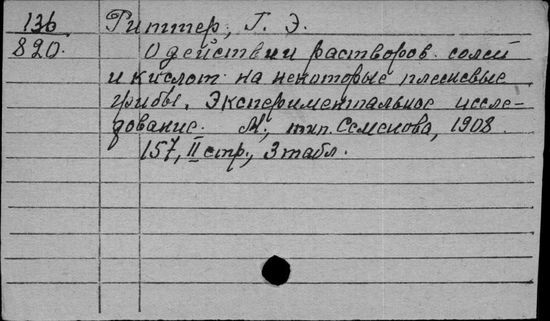 136 Риттер, Г. Э.
820. О действии растворов солей
и кислот на некоторые плесневые
грибы. Экспериментальное иссле-
дование. М., тип. Семенова, 1908.
157, II стр., 3 табл.